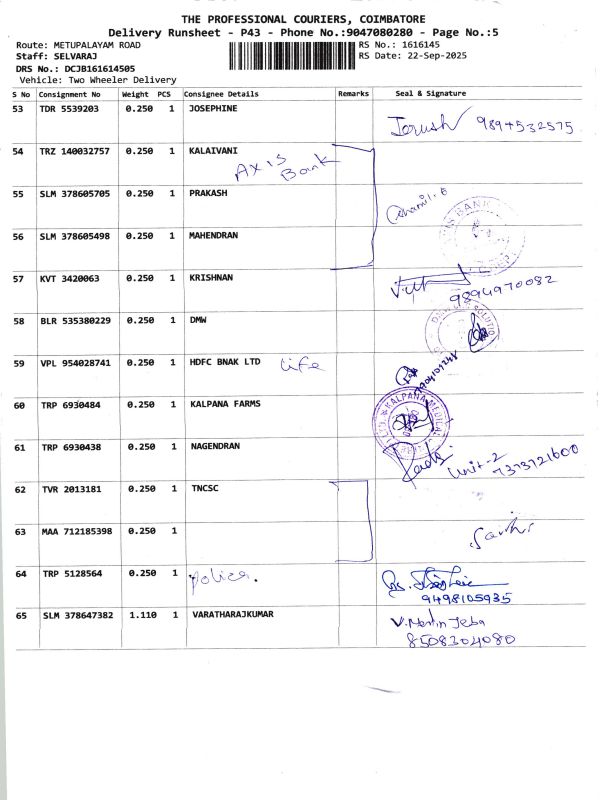 THE PROFESSIONAL COURIERS, COIMBATORE
Delivery Runsheet - P43 - Phone No.:9047080280 - Page No.:5
Route: METUPALAYAM ROAD RS No.: 1616145
Staff: SELVARAJ RS Date: 22-Sep-2025
DRS No.: DCJB161614505
Vehicle: Two Wheeler Delivery
S No Consignment No Weight PCS Consignee Details Remarks Seal & Signature
53 TDR 5539203 0.250 1 JOSEPHINE
9894532575
54 TRZ 140032757 0.250 1 KALAIVANI
Axis
Bank
55 SLM 378605705 0.250 1 PRAKASH
56 SLM 378605498 0.250 1 MAHENDRAN
57 KVT 3420063 0.250 1 KRISHNAN
9894970082
58 BLR 535380229 0.250 1 DMW
59 VPL 954028741 0.250 1 HDFC BNAK LTD Life
60 TRP 6930484 0.250 1 KALPANA FARMS
KALPANA MEDICAL
61 TRP 6930438 0.250 1 NAGENDRAN
Unit-2
7373721600
62 TVR 2013181 0.250 1 TNCSC
63 MAA 712185398 0.250 1
64 TRP 5128564 0.250 1 police.
9498105935
65 SLM 378647382 1.110 1 VARATHARAJKUMAR
V. Martin Jeba
8508304080